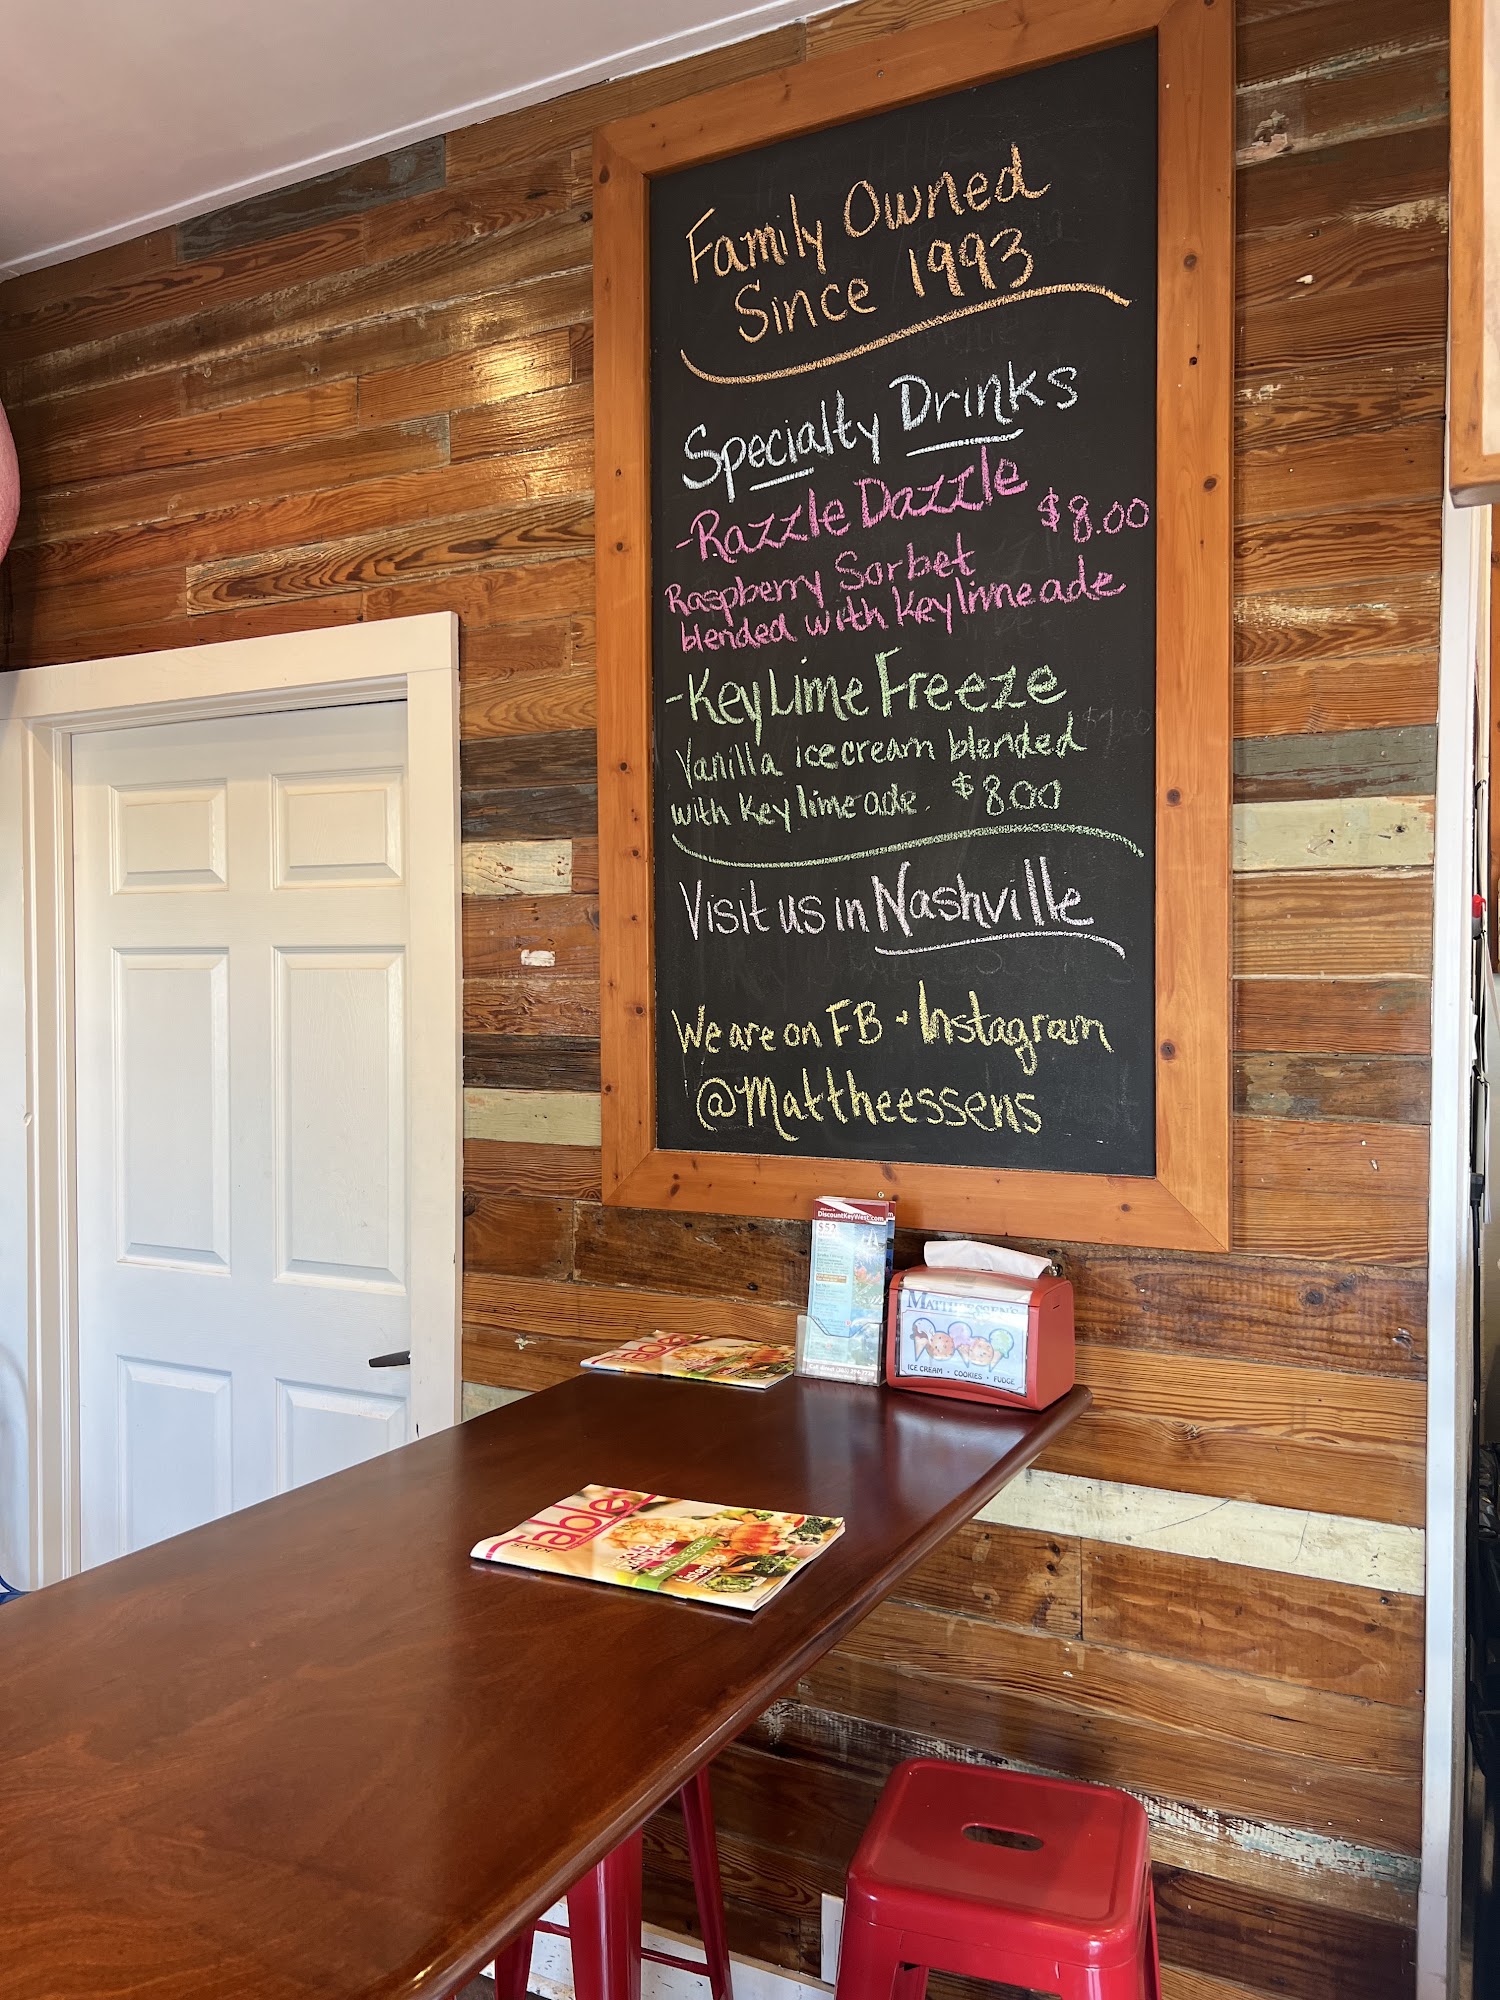 Family Owned
Since 1993
Specialty Drinks
-Razzle Dazzle
$8.00
Raspberry Sorbet
blended with Key limeade
-Key Lime Freeze
Vanilla ice cream blended
with Key limeade. $8.00
Visit us in Nashville
We are on FB + Instagram
@Mattheessens
DiscountKeyWest.com
$52
MATTHEESSEN'S
ICE CREAM • COOKIES • FUDGE
Table